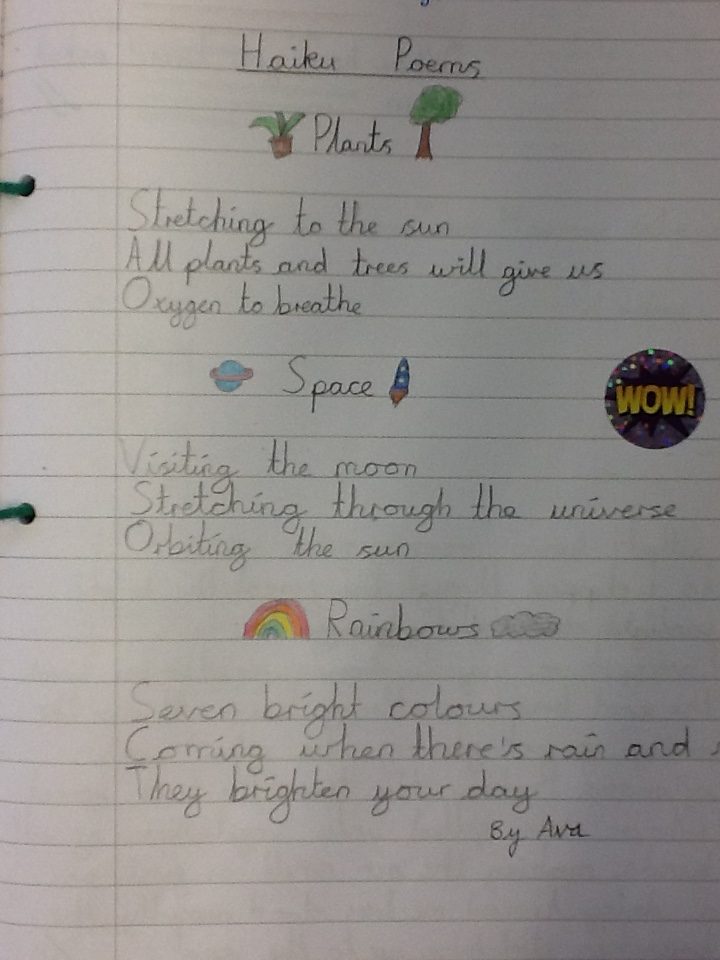 Haiku Poems
Plants
Stretching to the sun
All plants and trees will give us
Oxygen to breathe
Space
WOW!
Visiting the moon
Stretching through the universe
Orbiting the sun
Rainbows
Seven bright colours
Coming when there's rain and
They brighten your day
By Ava